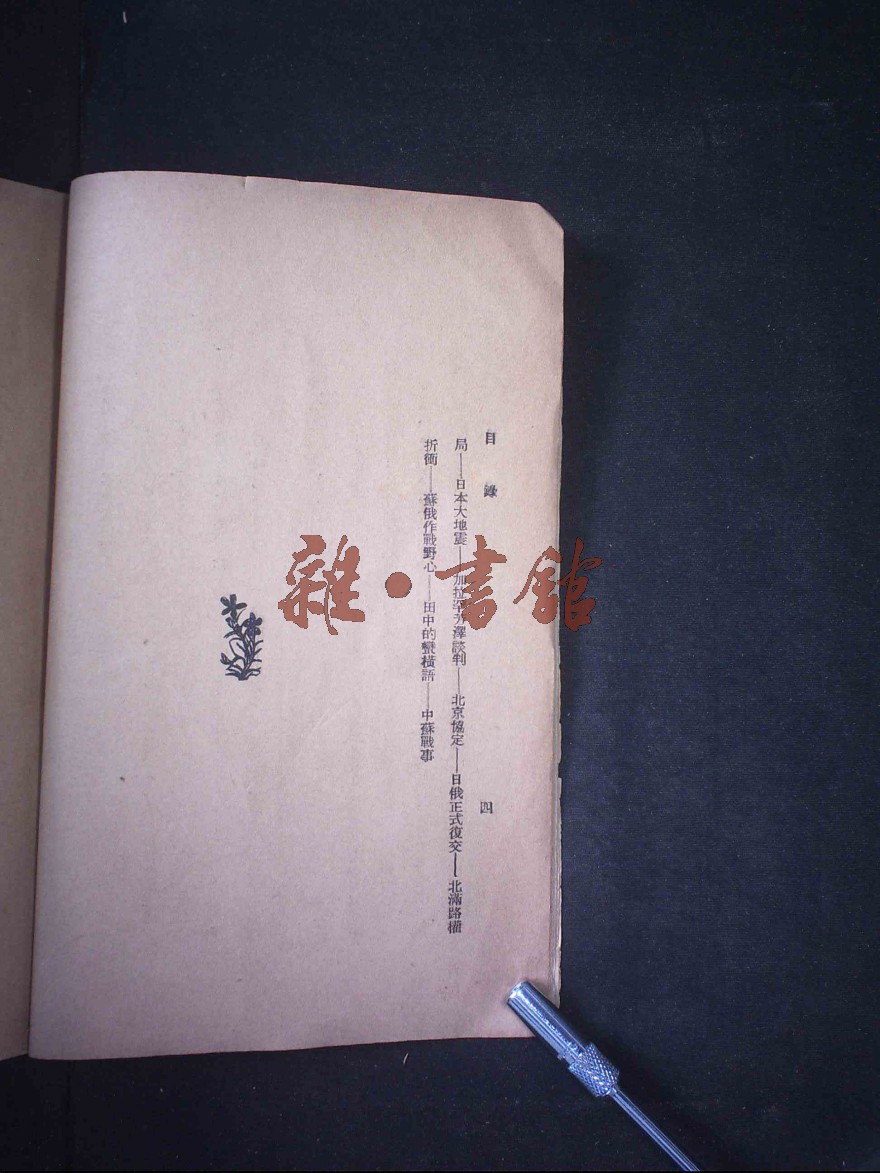 目錄
四
局——日本大地震——加拉罕芳澤談判——北京協定——日俄正式復交——北滿路權
折衝——蘇俄作戰野心——田中的蠻橫語——中蘇戰事
雜·書館